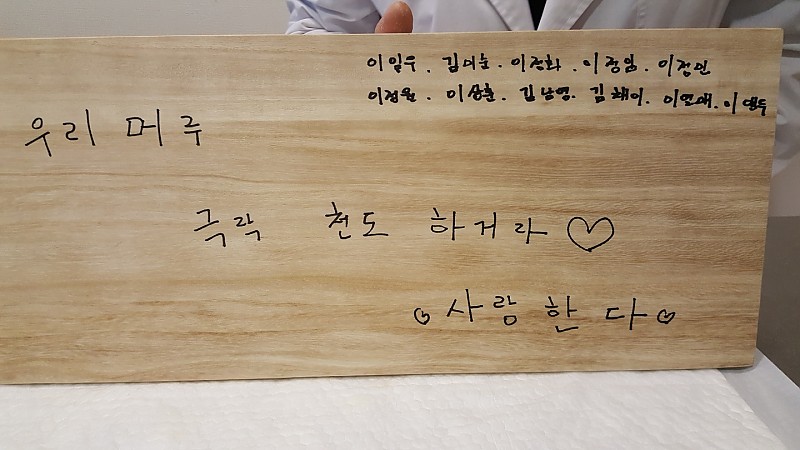 이일우. 김미순. 이정화. 이정임. 이정민
이정월. 이상훈. 김남영. 김해이. 이연애. 이영두
우리 머루
극락 천도 하거라 ♡
♡ 사랑한다 ♡